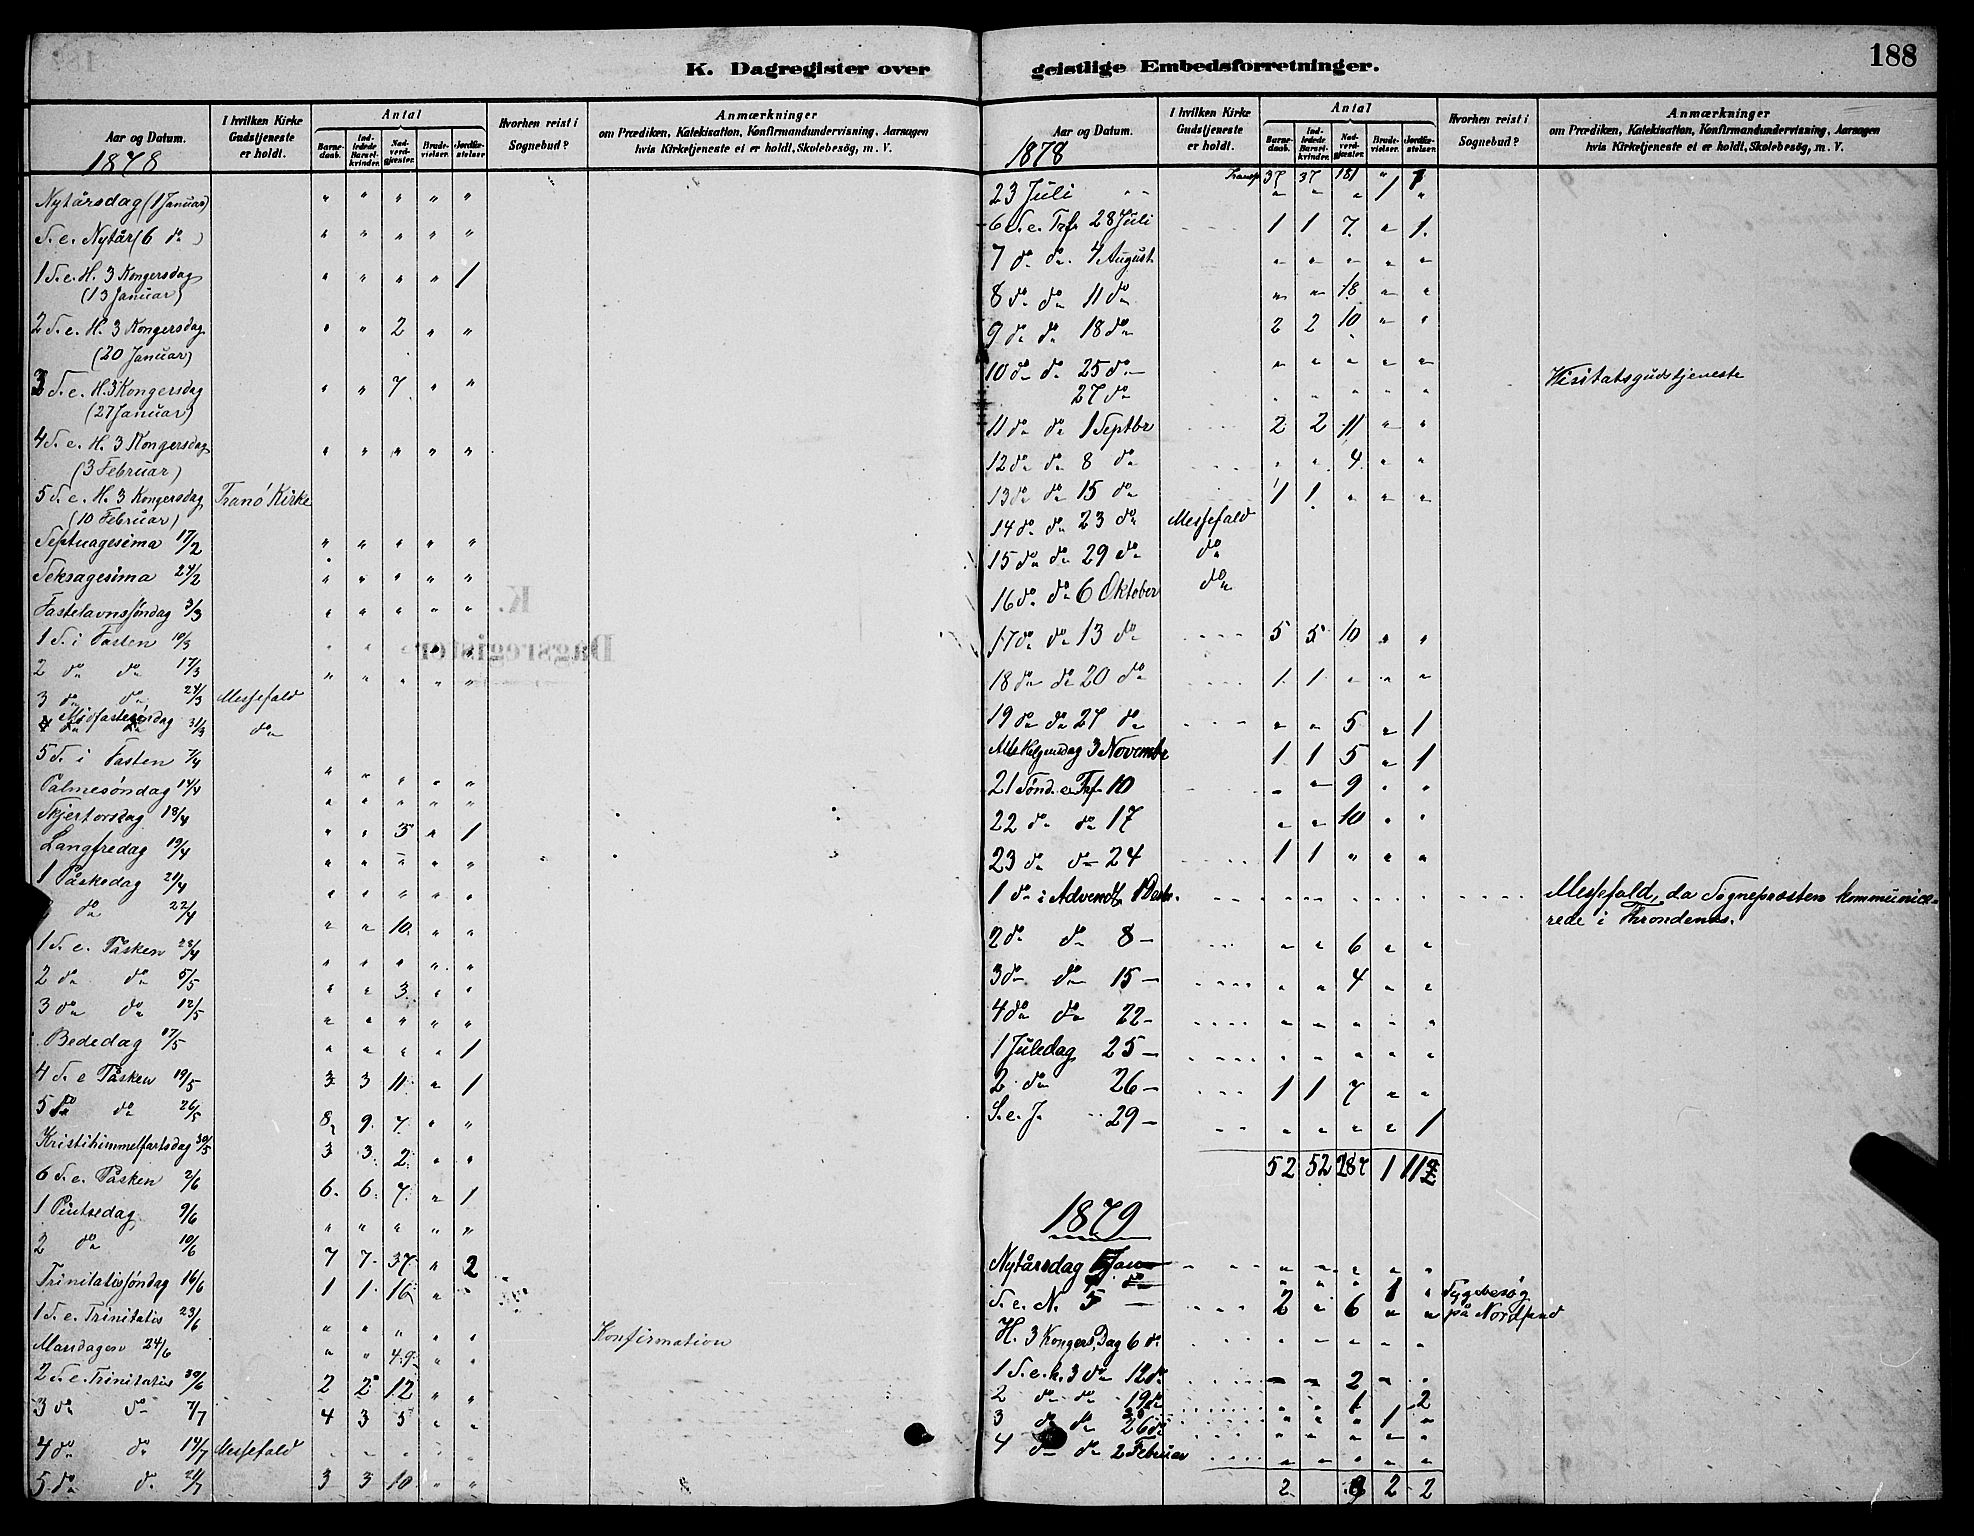 K. Dagregister over
Aar og Datum. I hvilken Kirke Gudstjeneste er holdt. Antal Barnedaab. Indledede Barselkvinder. Nadverdgjester. Brudevielser. Jordfæstelser Hvorhen reist i Sognebud? Anmærkninger om Prædiken, Katekisation, Konfirmandundervisning, Aarsagen hvis Kirketjeneste ei er holdt, Skolebesög, m. V.
1878
Nytårsdag (1 Januar) " " " " "
S. e. Nytår (6 do) " " " " "
1 S. e. H. 3 Kongersdag " " " " 1
(13 Januar)
2 S. e. H. 3 Kongersdag " " 2 " "
(20 Januar)
3 S. e. H. 3 Kongersdag " " 7. " "
(27 Januar)
4 S. e. H. 3 Kongersdag " " " " "
(3 Februar)
5 S. e. H. 3 Kongersdag Tranö Kirke
(10 Februar)
Septuagesima 17/2 " " " " "
Seksagesima 24/2 " " " " "
Fastelavnssöndag 3/3 " " " " "
1 S. i Fasten 10/3 " " " " "
2 do do 17/3 " " " " "
3 do do 24/3 Messefald
Midfastesöndag 31/3 do
5 S. i Fasten 7/4 " " " " "
Palmesöndag 14/4 " " " " "
Skjertorsdag 18/4 " " 5 " 1
Langfredag 19/4 " " " " "
1 Påskedag 21/4 " " " " "
do 22/4 " " 10. " "
1 S. e. Påsken 28/4 " " " " "
2 do do 5/5 " " 3. " "
3 do do 12/5 " " " " "
Bededag 17/5 " " " " 1
4 S. e Påsken 19/5 3 3 11 " 1
5 do do 26/5 8 9. 7. " "
Kristihimmelfartsdag 30/5 3 3. 2. " "
6 S. e. Påsken 2/6 6. 6. 7. " 1
1 Pintsedag 9/6 " " " " "
2 do 10/6 7 7. 37. " 2
Trinitatissöndag 16/6 1 1. 16 " "
1 S. e. Trinitatis 23/6 " " " " "
Mandagen 24/6 " " 49. " " Konfirmation
2 S. e. Trinitatis 30/6 2 2 12 " "
3 do do 7/7 4 3 5 " "
4 do do 14/7 Messefald
5 do do 21/7 3 3 10 " "
geistlige Embedsforretninger.
188
Aar og Datum. I hvilken Kirke Gudstjeneste er holdt. Antal Barnedaab. Indledede Barselkvinder. Nadverdgjester. Brudevielser. Jordfæstelser. Hvorhen reist i Sognebud? Anmærkninger om Prædiken, Katekisation, Konfirmandundervisning, Aarsagen hvis Kirketjeneste ei er holdt, Skolebesög, m. V.
1878
Transp 37 37 181 "
23 Juli " " " 1 "
6 S. e. Trf. 28 Juli 1 1 7. " 1.
7 do do. 4 August " " " " "
8 do do 11 do " " 18 " "
9 do do 18 do 2 2 10 " "
10 do do 25 do " " " " "
27 do " " " " " Visitatsgudstjeneste
11 do do 1 Septbr 2 2 11 " "
12 do do 8 do " " 4. " "
13 do do 15 do 1 1. " " "
14 do do 23 do Messefald
15 do do 29 do do
16 do do 6 Oktober do
17 do do 13 do 5 5 10 " "
18 do do 20 do 1. 1. " " "
19 do do 27 do " " 5 " 1
Allehelgensdag 3 Novembr 1 1 5 " 1
21 Sönd. e Trf. 10 " " 9 " "
22 do do 17 " " 10 " "
23 do do 24 1 1 " " "
1 do i Advendt 1 Decbr. Messefald, da Sognepræsten kommunice-
rede i Throndenes.
2 do do 8 " " 6 " "
3 do do 15 " " 4 " "
4 do do 22 " " " " "
1 Juledag 25 " " " " "
2 do 26 1 1 7 " "
S. e. J. 29 " " " " 1
52 52 287 1
1879
Nytårsdag 1 Jan " " " " "
do " " " 1 " Sygebesøg
S. e. N. 5 2 " 6 " " på Nordfund
H. 3 Kongers Dag 6 do " " " " "
1 S. e. h. 3 do 12 do " " 2 " "
2 do do 19 do " " 1 2
3 do do 26 do " " " " "
4 do do 2 Februar " " " " "
2 2 2